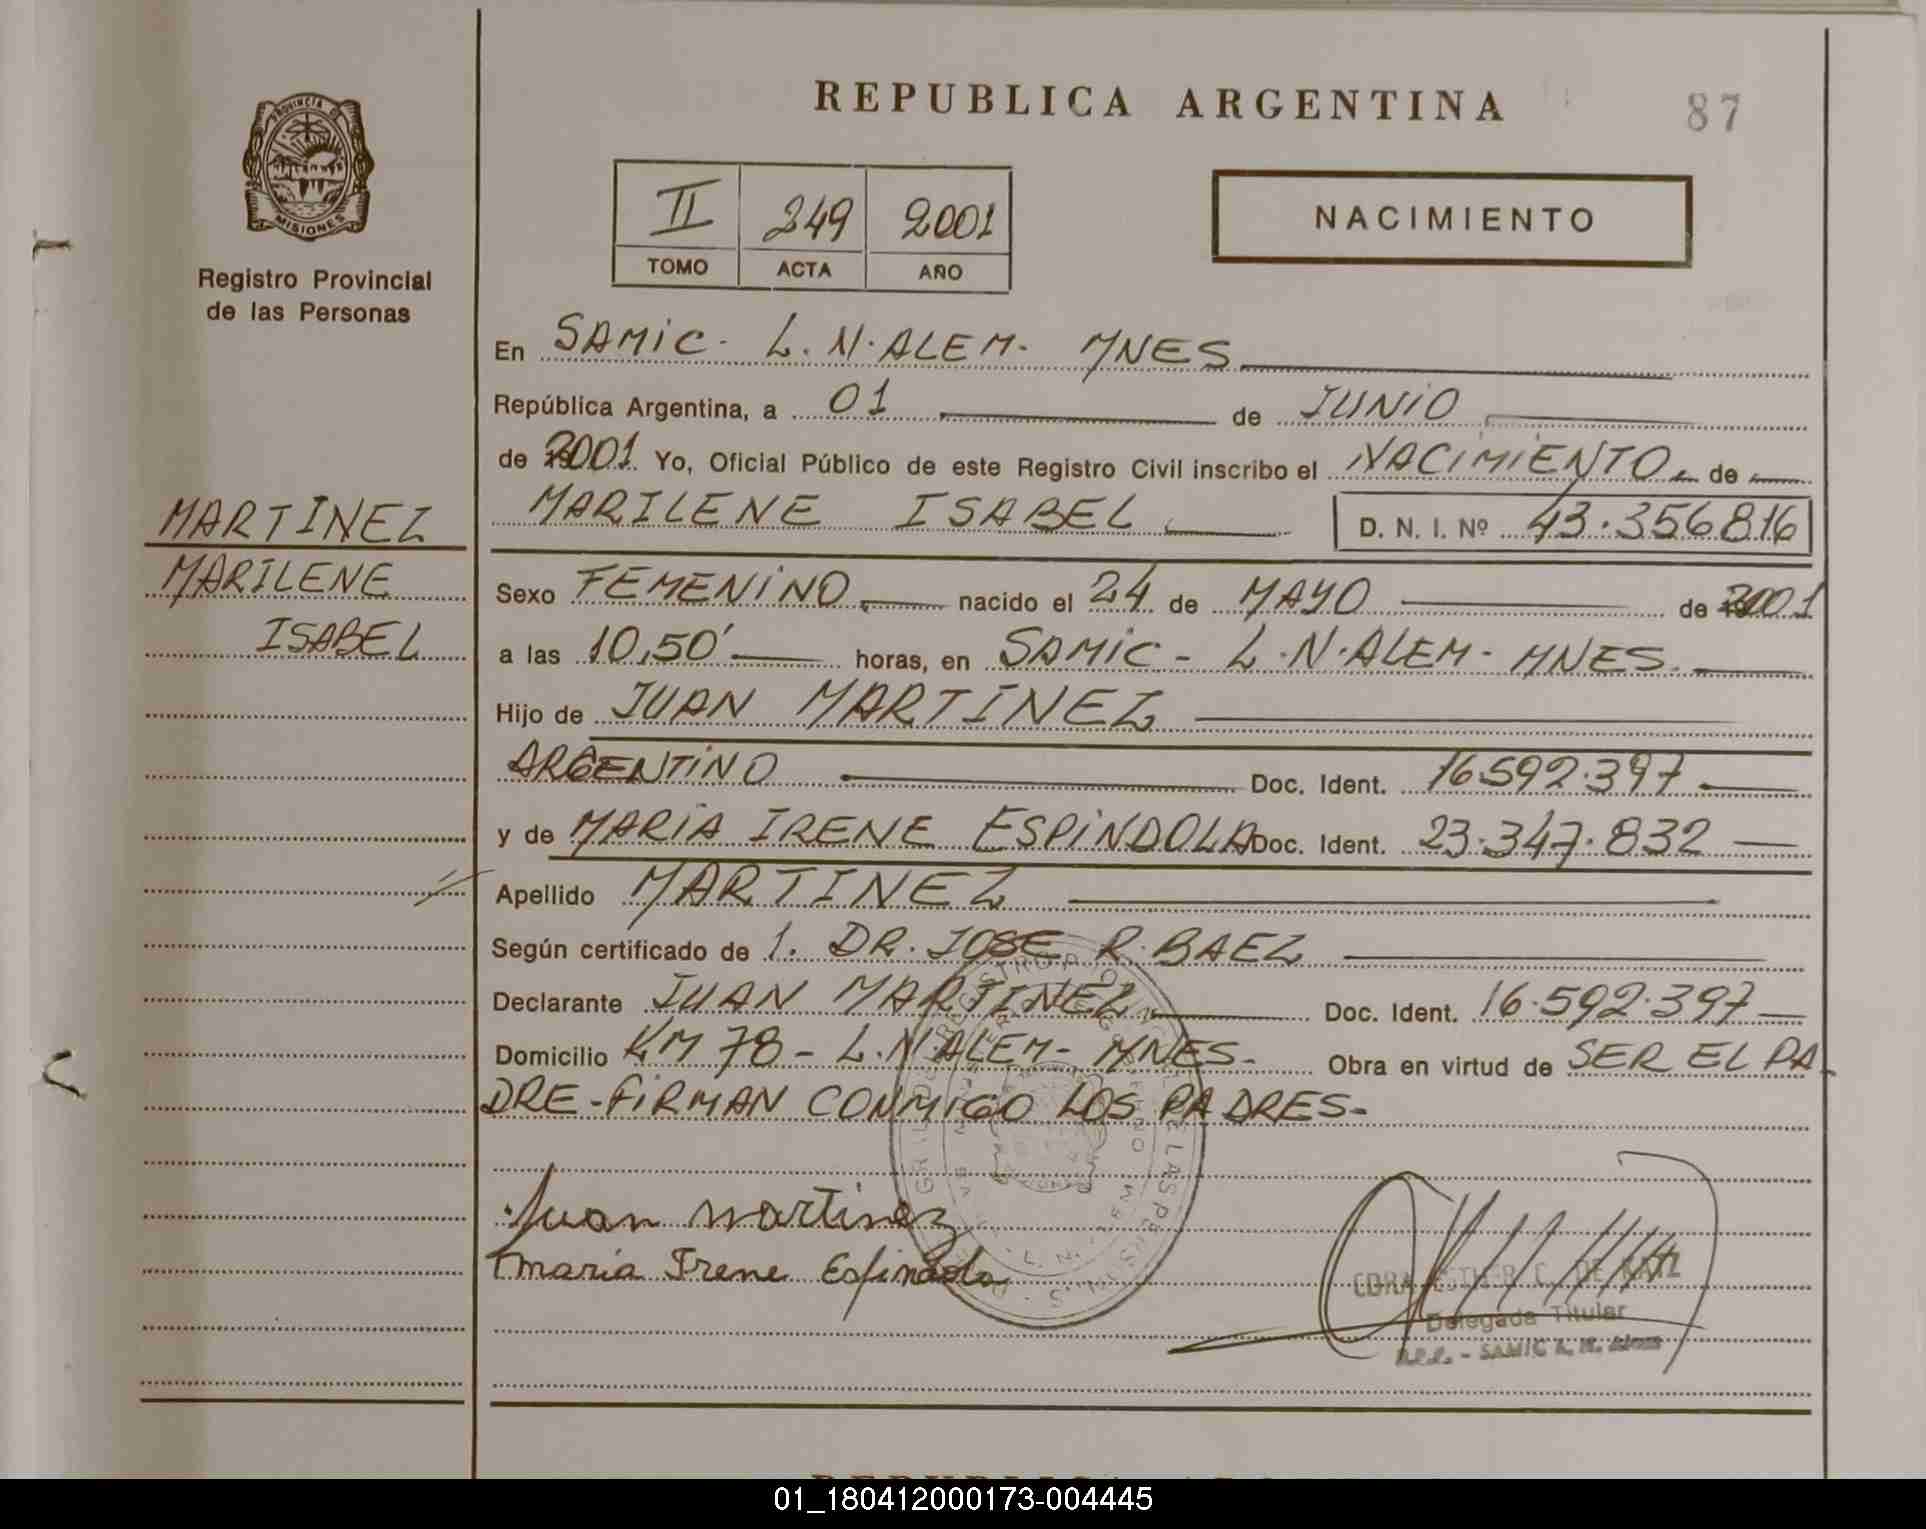 REPUBLICA ARGENTINA
87
PROVINCIA DE
MISIONES
Registro Provincial
de las Personas
II 249 2001
TOMO ACTA AÑO
NACIMIENTO
En SAMIC - L. N. ALEM - MNES
República Argentina, a 01 de JUNIO
de 2001 Yo, Oficial Público de este Registro Civil inscribo el NACIMIENTO de
MARILENE ISABEL D. N. I. Nº 43.356816
MARTINEZ
MARILENE
ISABEL
Sexo FEMENINO nacido el 24 de MAYO de 2001
a las 10,50' horas, en SAMIC - L. N. ALEM - MNES.
Hijo de JUAN MARTINEZ
ARGENTINO Doc. Ident. 16592.397
y de MARIA IRENE ESPINDOLA Doc. Ident. 23.347.832
Apellido MARTINEZ
Según certificado de 1. DR. JOSE R. BAEZ
Declarante JUAN MARTINEZ Doc. Ident. 16.592.397
Domicilio KM 78 - L. N. ALEM - MNES - Obra en virtud de SER EL PA
DRE - FIRMAN CONMIGO LOS PADRES -
Juan martinez
maria Irene Espindola
C. DE
Delegada Titular
SAMIC L. N. Alem
01_180412000173-004445